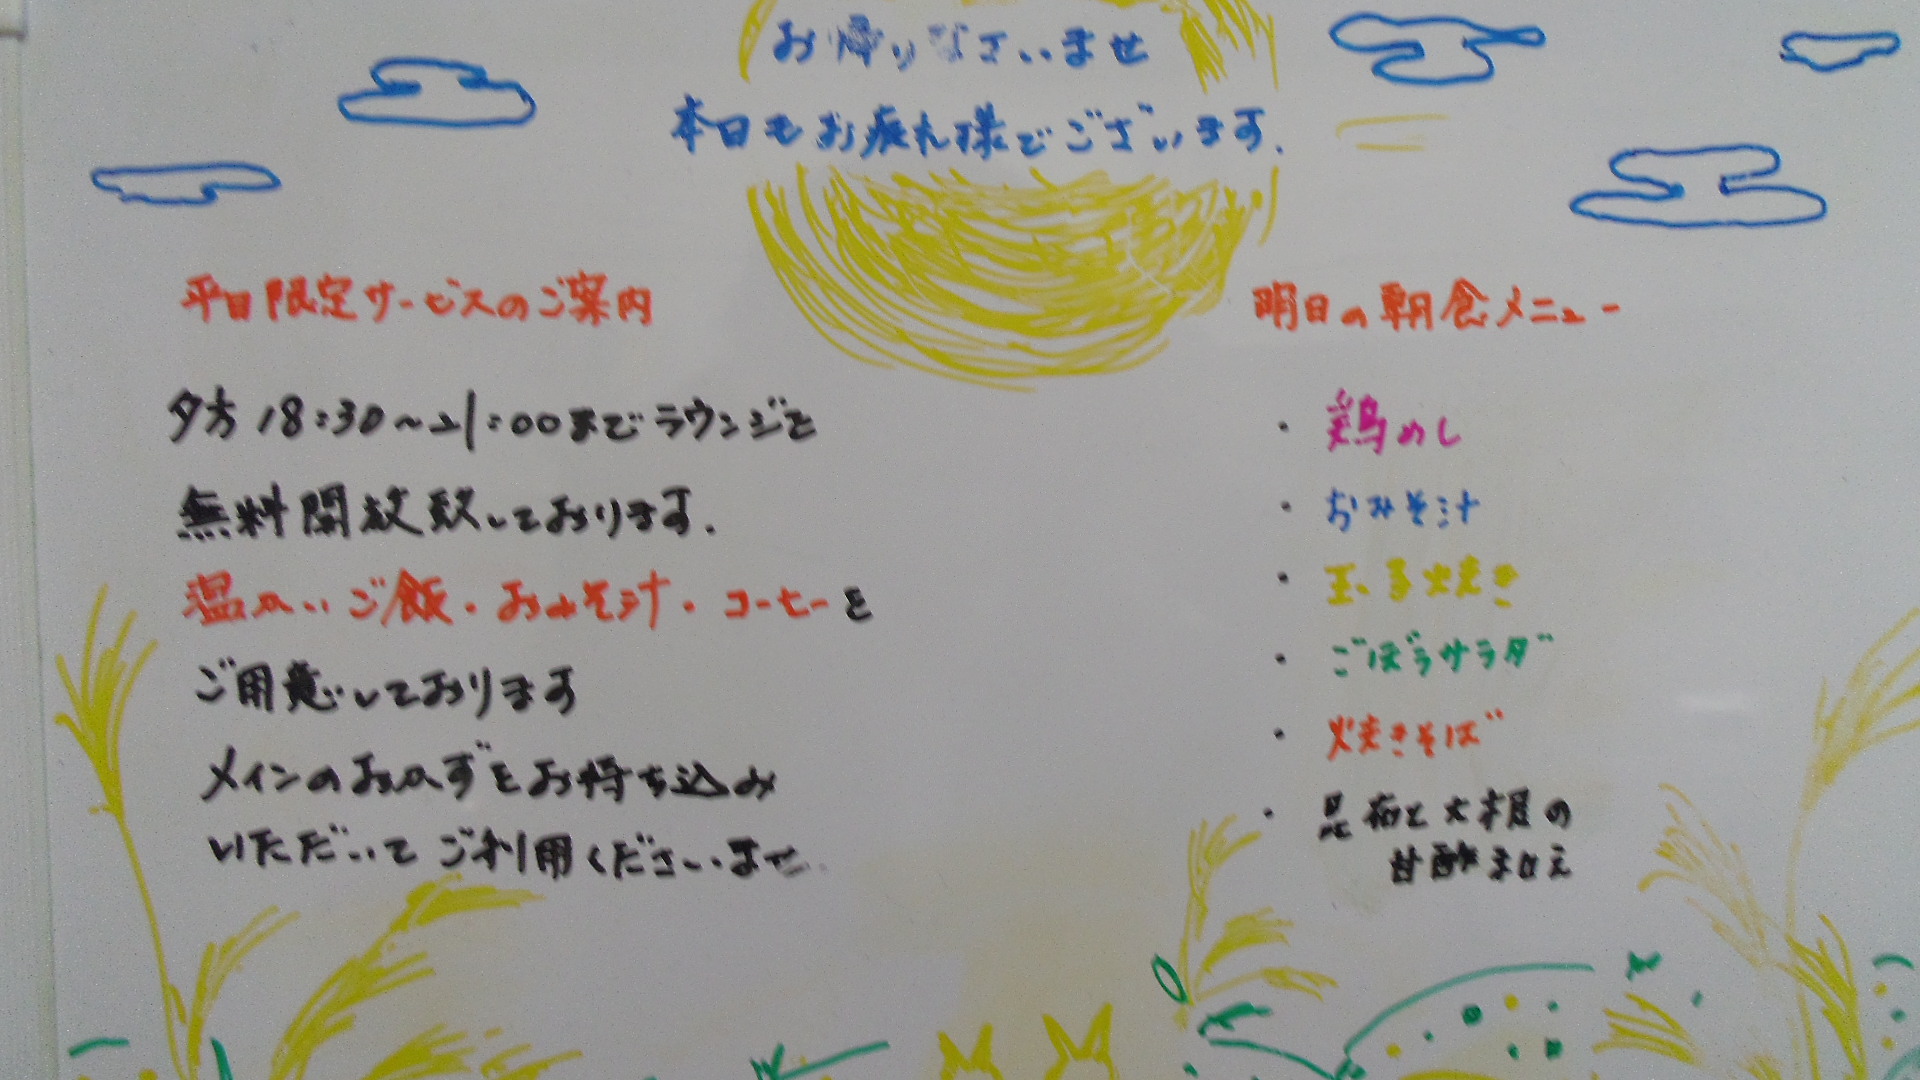 お帰りなさいませ
本日もお疲れ様でございます.
平日限定サービスのご案内
夕方 18:30～21:00までラウンジを
無料開放致しております.
温かいご飯・おみそ汁・コーヒーを
ご用意しております
メインのおかずをお持ち込み
いただいてご利用くださいませ.
明日の朝食メニュー
・鶏めし
・おみそ汁
・玉子焼き
・ごぼうサラダ
・焼きそば
・昆布と大根の
甘酢まかえ